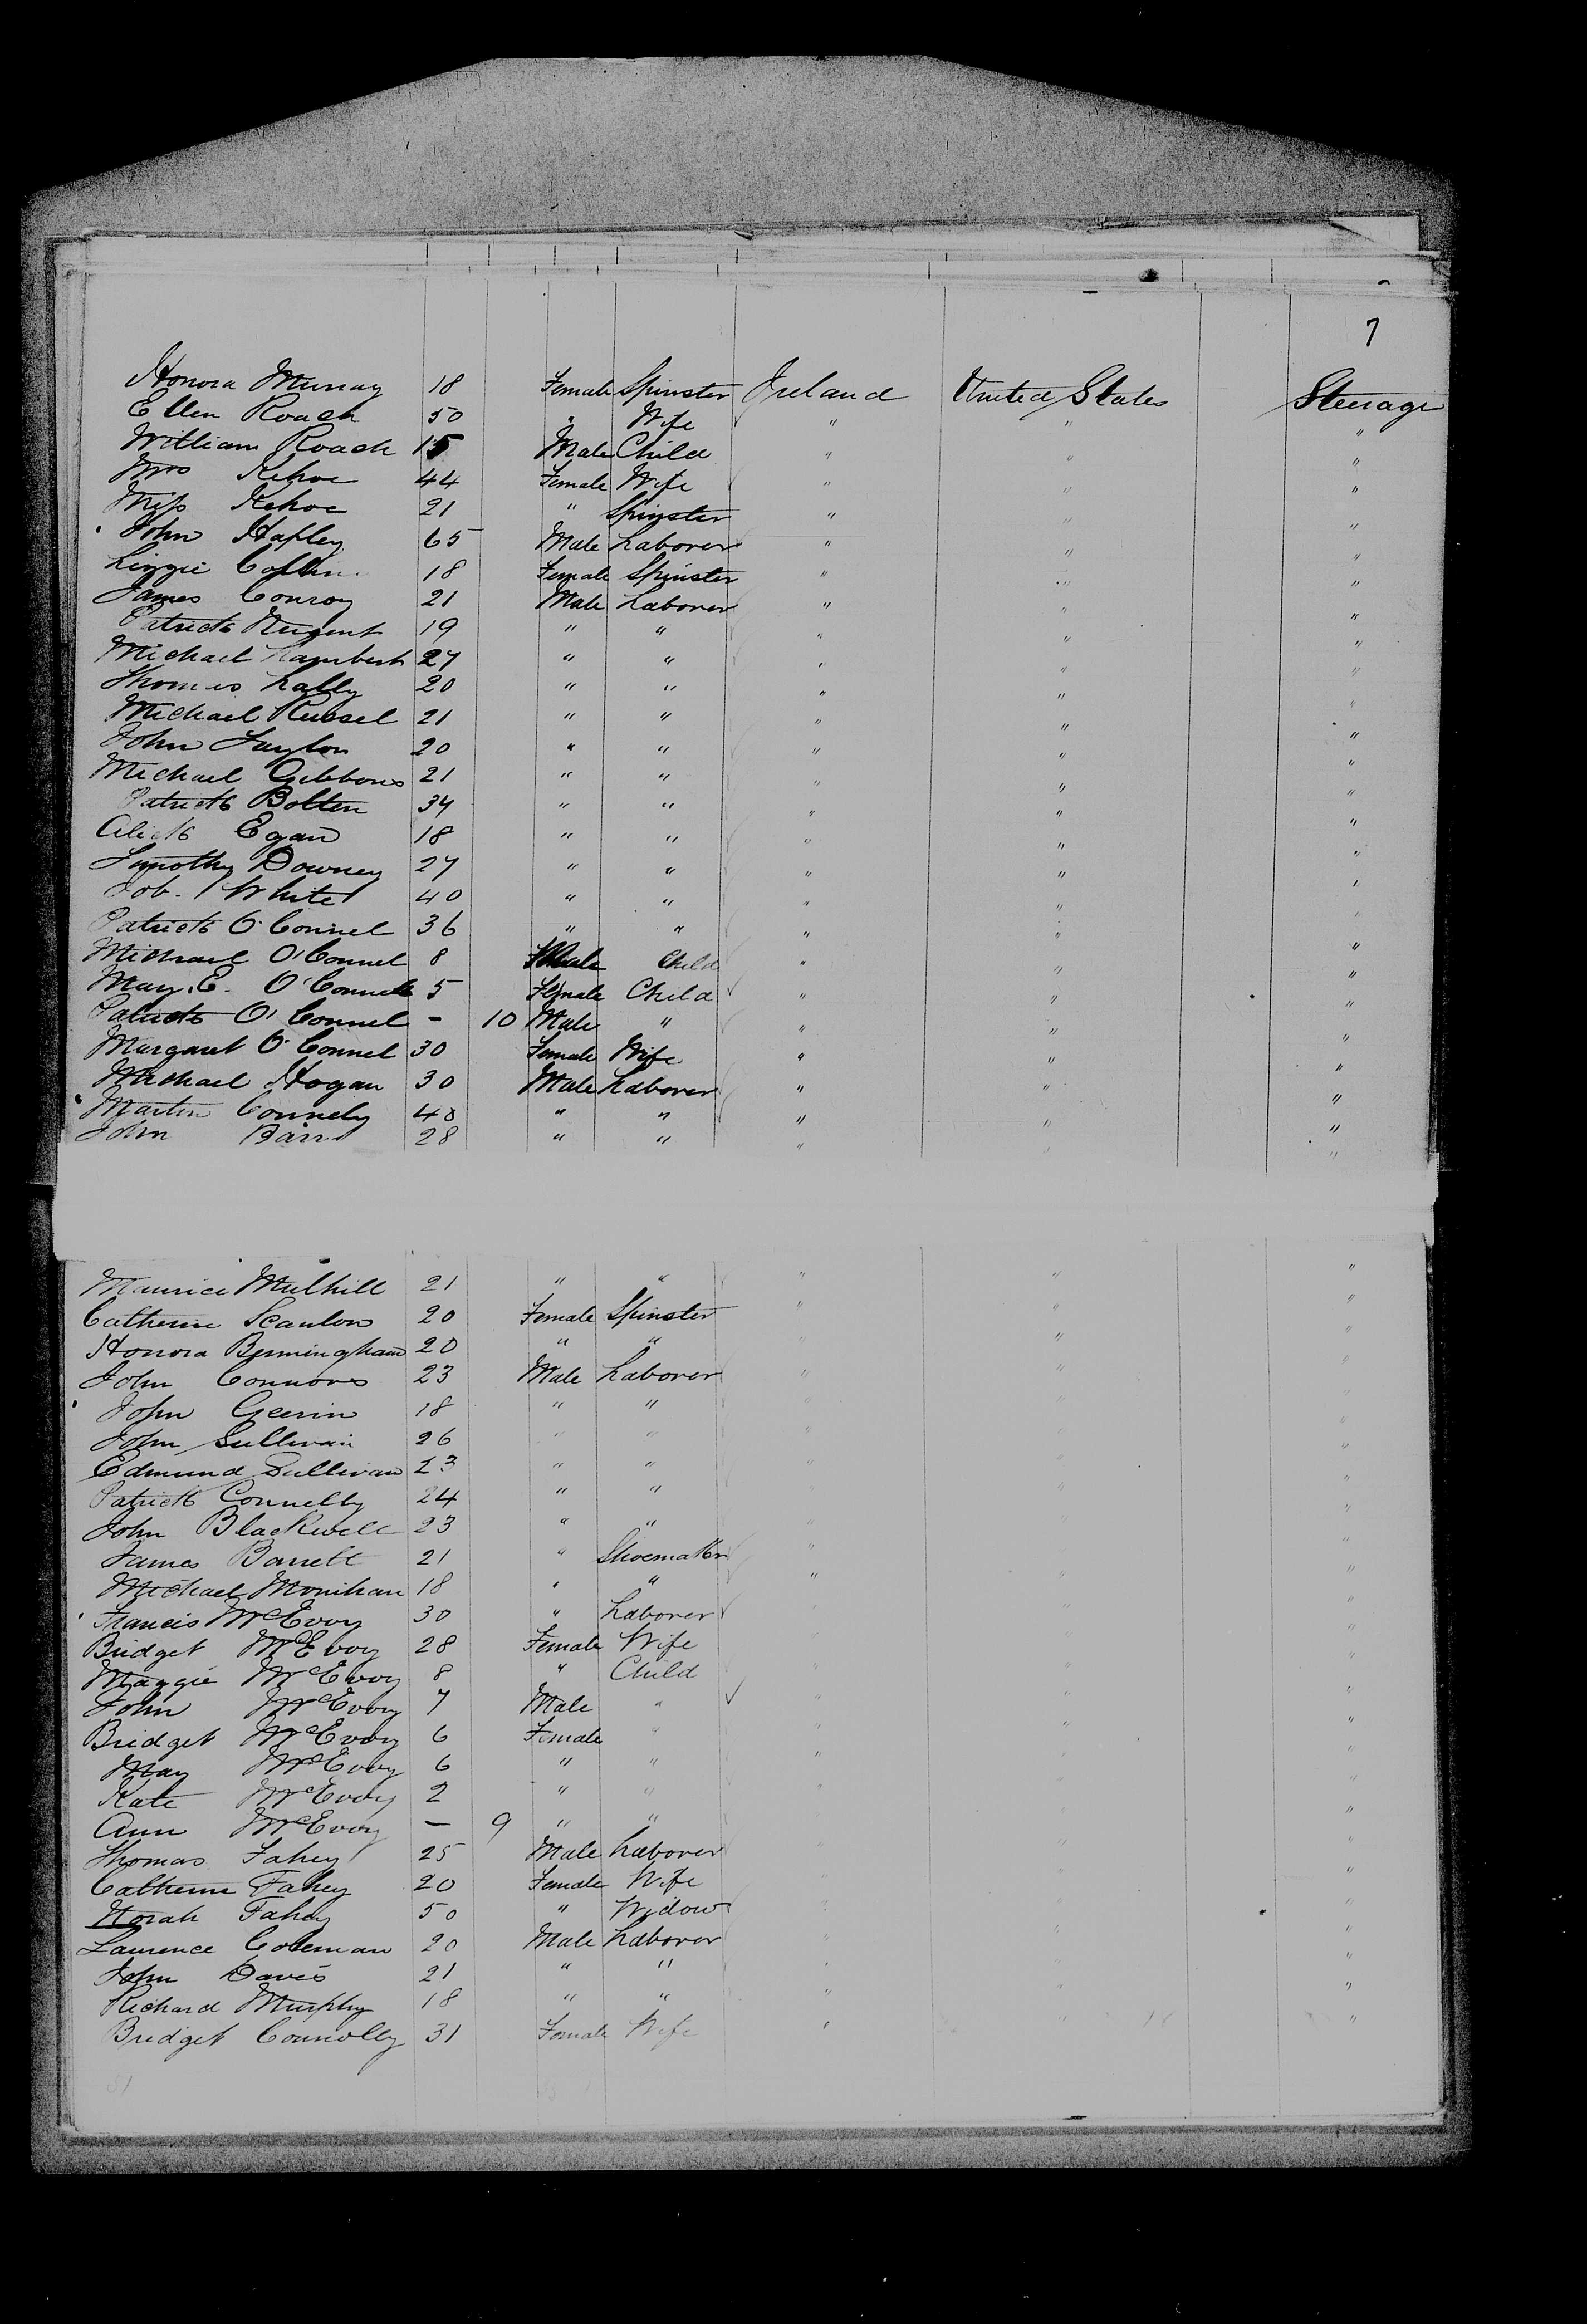 7
Honora Murray 18 Female Spinster Ireland United States Steerage
Ellen Roach 50 " Wife " " "
William Roach 15 Male Child " " "
Mrs Kehoe 44 Female Wife " " "
Miss Kehoe 21 " Spinster " " "
John Hafley 65 Male Laborer " " "
Lizzie 18 Female Spinster " " "
James Conroy 21 Male Laborer " " "
Patrick Nugent 19 " " " " "
Michael Lambert 27 " " " " "
Thomas Lally 20 " " " " "
Michael Russel 21 " " " " "
John 20 " " " " "
Michael Gibbons 21 " " " " "
Patrick Bolten 34 " " " " "
Egan 18 " " " " "
Timothy Downey 27 " " " " "
Job. White 40 " " " " "
Patrick O'Connel 36 " " " " "
Michael O'Connel 8 Male Child " " "
May. E. O'Connell 5 Female Child " " "
Patrick O'Connel - 10 Male " " " "
Margaret O'Connel 30 Female Wife " " "
Michael Hogan 30 Male Laborer " " "
Martin Connely 40 " " " " "
John 28 " " " " "
Maurice Mulhill 21 " " " " "
Catherine Scanlon 20 Female Spinster " " "
Honora Bermingham 20 " " " " "
John Connors 23 Male Laborer " " "
John Geerin 18 " " " " "
John Sullivan 26 " " " " "
Edmund Sullivan 23 " " " " "
Patrick Connelly 24 " " " " "
John Blackwell 23 " " " " "
James Barrett 21 " Shoemaker " " "
Michael Monihan 18 " " " " "
Francis McEvoy 30 " Laborer " " "
Bridget McEvoy 28 Female Wife " " "
Maggie McEvoy 8 " Child " " "
John McEvoy 7 Male " " " "
Bridget McEvoy 6 Female " " " "
May McEvoy 6 " " " " "
Kate McEvoy 2 " " " " "
Ann McEvoy - 9 " " " " "
Thomas Fahey 25 Male Laborer " " "
Catherine Fahey 20 Female Wife " " "
Norah Fahey 50 " Widow " " "
Laurence Coleman 20 Male Laborer " " "
John Davis 21 " " " " "
Richard Murphy 18 " " " " "
Bridget Connolly 31 Female Wife " " "